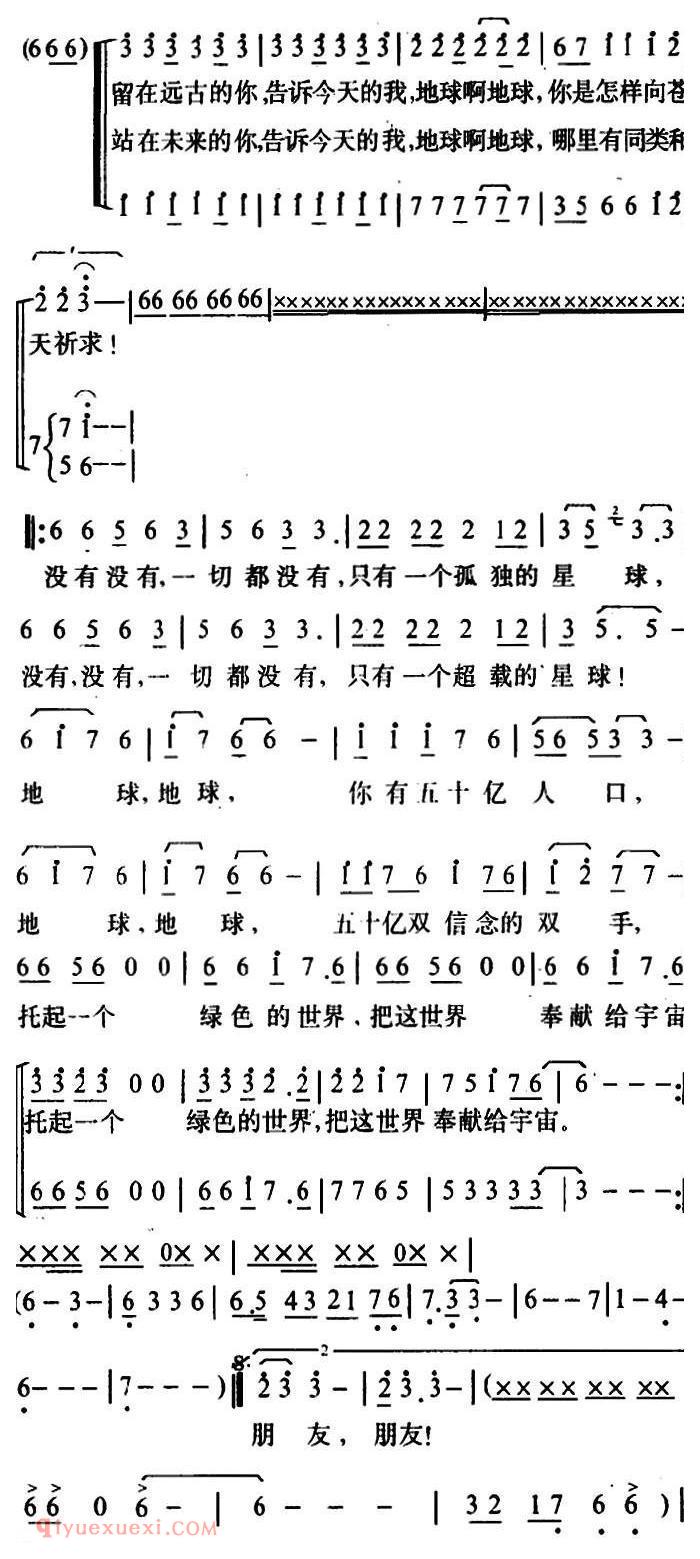 (666) 3 3 3 3 3 3 | 3 3 3 3 3 3 | 2 2 2 2 2 2 | 6 7 1 1 1 2
留在远古的你,告诉今天的我,地球啊地球,你是怎样向苍
站在未来的你,告诉今天的我,地球啊地球,哪里有同类和
1 1 1 1 1 1 | 1 1 1 1 1 1 | 7 7 7 7 7 7 | 3 5 6 6 1 2
2 2 3 — | 66 66 66 66 | ×××××××××××××××× | ××××××××××××××××
天祈求!
7 { 7 1 - - |
5 6 - - |
‖: 6 6 5 6 3 | 5 6 3 3. | 22 22 2 12 | 3 5 2 3 . 3
没有没有,一切都没有,只有一个孤独的星球,
6 6 5 6 3 | 5 6 3 3. | 22 22 2 12 | 3 5. 5 -
没有,没有,一切都没有,只有一个超载的星球!
6 1 7 6 | 1 7 6 6 - | 1 1 1 7 6 | 56 53 3 -
地球,地球,你有五十亿人口,
6 1 7 6 | 1 7 6 6 - | 1 1 7 6 1 76 | 1 2 7 7 -
地球,地球,五十亿双信念的双手,
66 56 0 0 | 6 6 1 7 . 6 | 66 56 0 0 | 6 6 1 7 . 6
托起一个绿色的世界,把这世界奉献给宇宙
33 23 0 0 | 3 3 3 2 . 2 | 2 2 1 7 | 7 5 1 76 | 6 - - - :
托起一个绿色的世界,把这世界奉献给宇宙。
66 56 0 0 | 6 6 1 7 . 6 | 7 7 6 5 | 5 3 3 3 33 | 3 - - - :
××× ×× 0× × | ××× ×× 0× × |
(6 - 3 - | 6 3 3 6 | 6.5 43 21 76 | 7. 3 3 - | 6 - - 7 | 1 - 4 -
6 - - - | 7 - - - ) ‖ 2 3 3 - | 2 3 . 3 - | (×× ×× ×× ××
朋友,朋友!
6 6 0 6 - | 6 - - - | 32 17 6 6 ) |
qiyuexuexi.COM